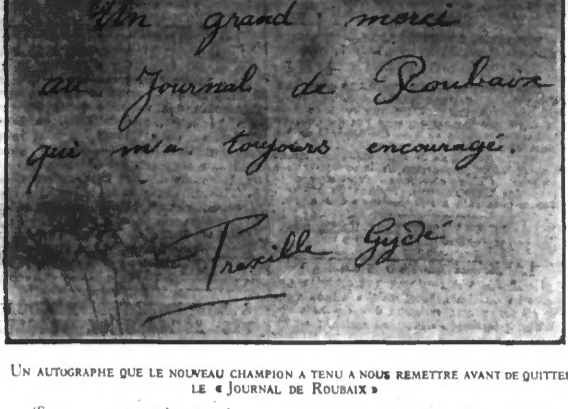 Un grand merci
au Journal de Roubaix
qui m'a toujours encouragé.
Praxille Gydé
UN AUTOGRAPHE QUE LE NOUVEAU CHAMPION A TENU A NOUS REMETTRE AVANT DE QUITTER
LE « JOURNAL DE ROUBAIX »